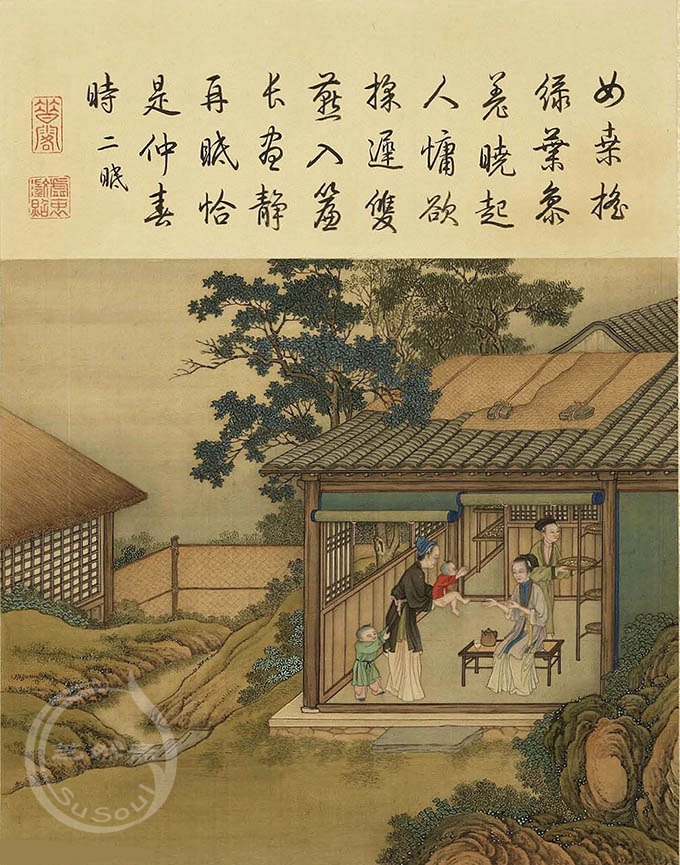 女桑搖
綠葉參
差曉起
人慵欲
採遲雙
燕入簾
長晝靜
再眠恰
是仲春
時 二眠
SuSoul